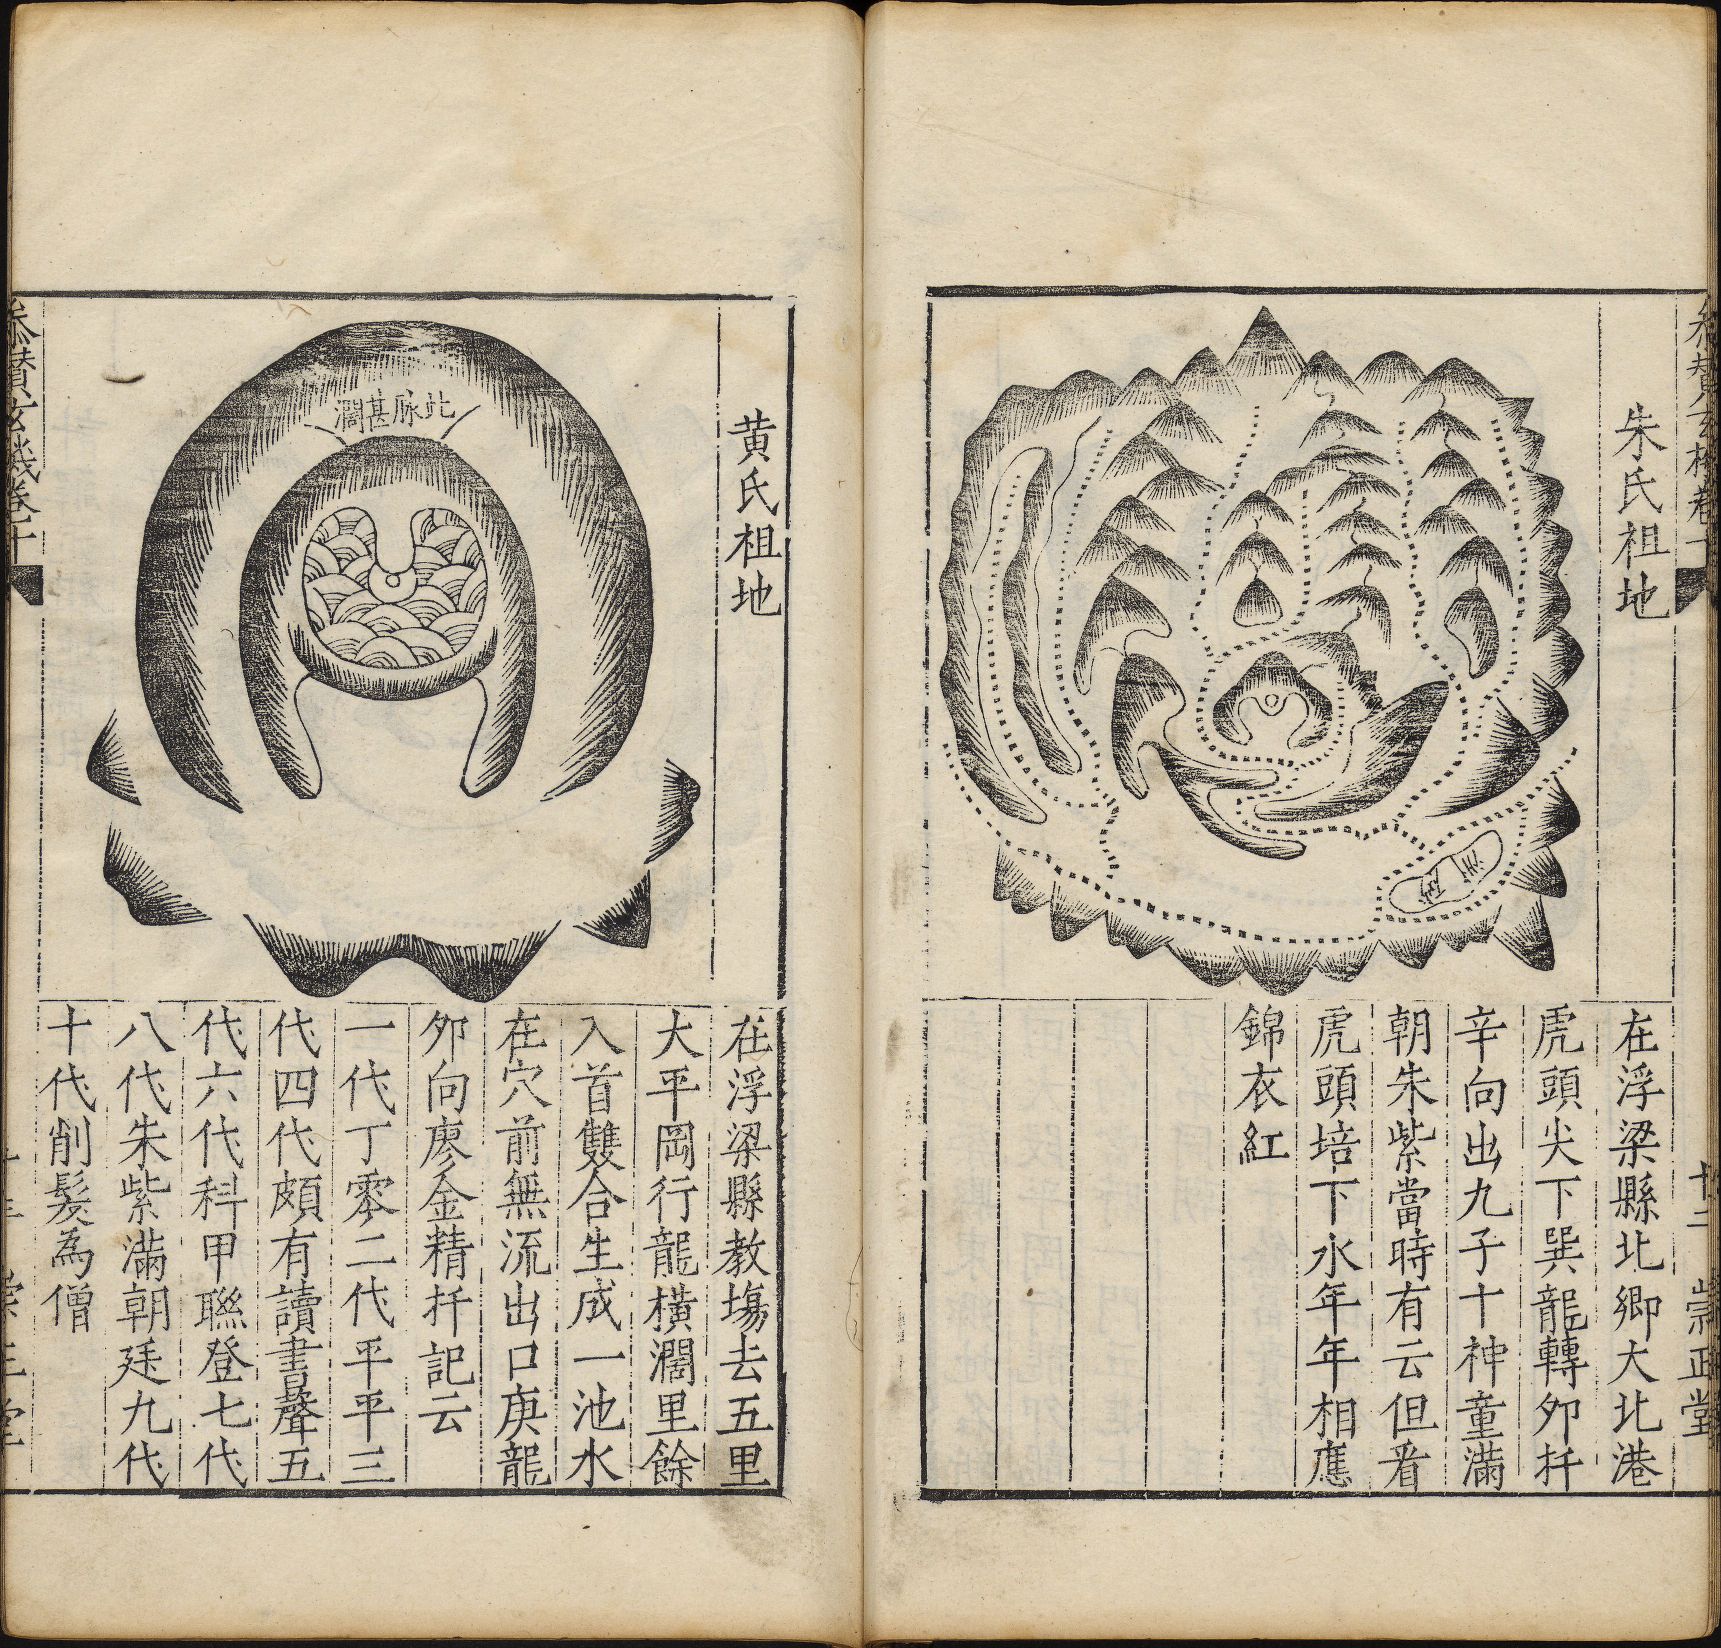 朱氏祖地
在浮梁縣北鄉大北港
虎頭尖下巽龍轉夘扦
辛向出九子十神童滿
朝朱紫當時有云但看
虎頭培下水年年相應
錦衣紅
十二
崇正堂
黄氏祖地
此脉甚濶
在浮梁縣教塲去五里
大平岡行龍橫濶里餘
入首雙合生成一池水
在穴前無流出口庚龍
夘向廖金精扦記云
一代丁零二代平平三
代四代頗有讀書聲五
代六代科甲聯登七代
八代朱紫滿朝廷九代
十代削髮為僧